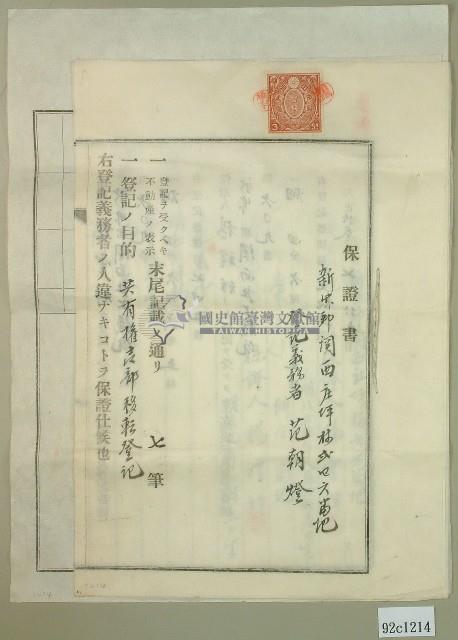 保證書
新竹郡関西庄坪林弐四六番地
登記義務者 范朝燈
一 登記ヲ受クベキ不動産ノ表示 末尾記載ノ通リ 七筆
一 登記ノ目的 共有權全部移転登記
右登記義務者ノ人違ナキコトヲ保證仕候也
國史館臺灣文獻館
TAIWAN HISTORICA
3
92c1214